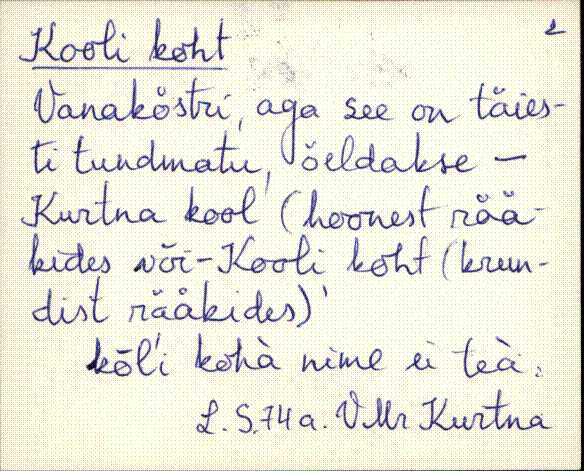 2
Kooli koht
Vanaköstri, aga see on täies-
ti tundmatu, öeldakse –
Kurtna kool (hoonest rää-
kides või – Kooli koht (krun-
dist rääkides)
kōl'i kohà nime ei teà.
L. S. 74 a. VMr Kurtna